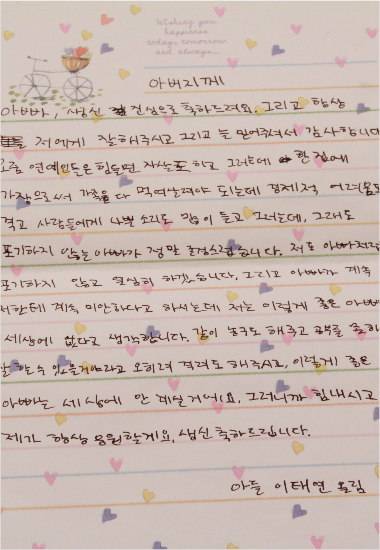 Wishing you
happiness
today, tomorrow
and always...
아버지께
아빠, 생신 진심으로 축하드려요. 그리고 항상
저에게 잘해주시고 그리고 늘 믿어줘서 감사합니다
요즘 연예인들은 힘들면 자살도 하고 그러는데 한 집에
가장으로서 가족을 다 먹여살려야 되는데 경제적, 어려움도
겪고 사람들에게 나쁜 소리도 많이 듣고 그러는데, 그래도
포기하지 않는 아빠가 정말 존경스럽습니다. 저도 아빠처럼
포기하지 않고 열심히 하겠습니다. 그리고 아빠가 계속
저한테 계속 미안하다고 하시는데 저는 이렇게 좋은 아빠
세상에 없다고 생각합니다. 같이 농구도 해주고 공부를 못하
잘 할 수 있을거야라고 오히려 격려도 해주시고, 이렇게 좋은
아빠는 세상에 안 계실거에요. 그러니까 힘내시고
제가 항상 응원할게요. 생신 축하드립니다.
아들 이태연 올림